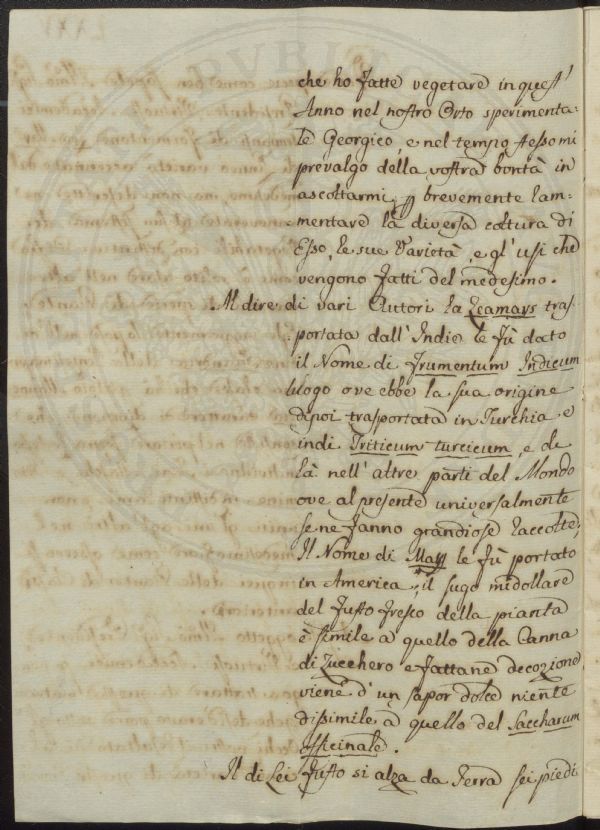 che ho fatte vegetare in quest'
Anno nel nostro Orto sperimenta=
le Georgico, e nel tempo stesso mi
prevalgo della vostra bontà in
ascoltarmi, brevemente ram=
mentare la diversa coltura di
Esso, le sue Varietà, e gl'usi che
vengono fatti del medesimo.
Al dire di vari Autori la Zeamays tras=
portata dall'Indie le fù dato
il Nome di Frumentum Indicum
luogo ove ebbe la sua origine
dipoi trasportata in Turchia e
indi Triticum turcicum, e di
là nell'altre parti del Mondo
ove al presente universalmente
se ne fanno grandiose raccolte;
Il Nome di Mays le fù portato
in America; il sugo midollare
del fusto fresco della pianta
è simile a quello della Canna
di Zucchero e fattane decozione
viene d'un sapor dolce niente
dissimile à quello del Saccharum
officinale.
Il di Lei fusto si alza da Terra sei piedi